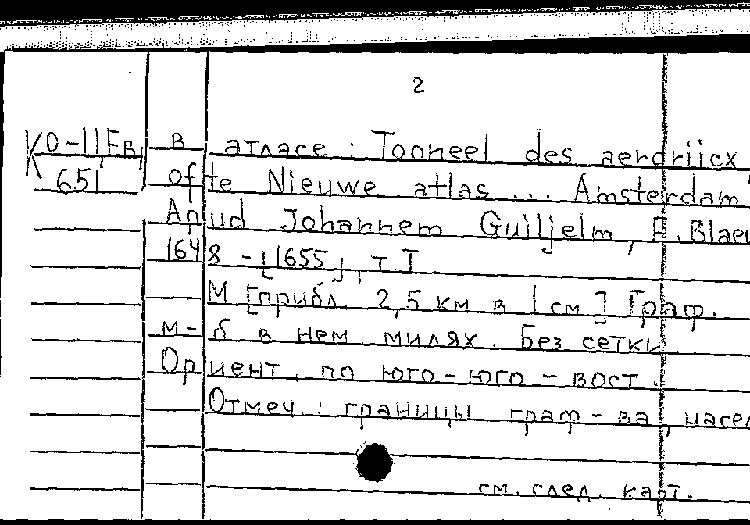 2
КО-11,Ев,
651
в атласе: Tooneel des aerdrijcx
ofte Nieuwe atlas ... Amsterdam
Apud Johannem Guiljelm, F. Blaeu
1648 - [1655], т I
М [прибл. 2,5 км в 1 см] Граф.
м-б в нем милях. Без сетки
Ориент. по юго-юго-вост.
Отмеч.: границы граф-ва, насел
см. след. карт.